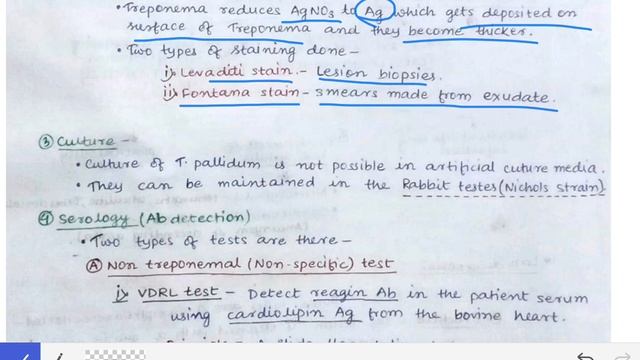 • Treponema reduces AgNO3 to Ag which gets deposited on
surface of Treponema and they become thicker.
• Two types of staining done –
i) Levaditi stain – Lesion biopsies.
ii) Fontana stain – smears made from exudate.
③ Culture –
• Culture of T. pallidum is not possible in artificial cuture media.
• They can be maintained in the Rabbit testes (Nichols strain)
④ Serology (Ab detection)
• Two types of tests are there –
Ⓐ Non treponemal (Non-specific) test
i) VDRL test – Detect reagin Ab in the patient serum
using cardiolipin Ag from the bovine heart.